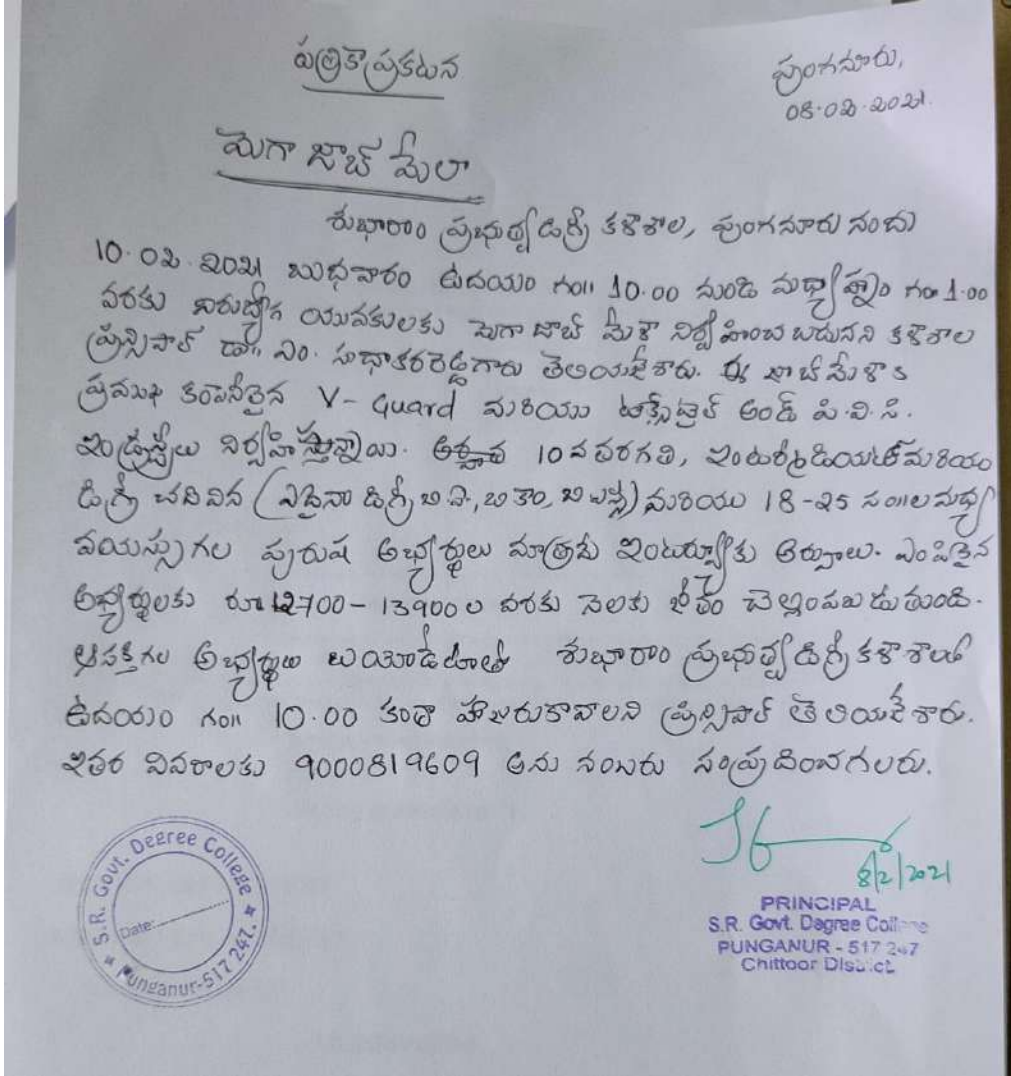 పత్రికాప్రకటన
పుంగనూరు,
08.02.2021.
మెగా జాబ్ మేలా
శుభారాం ప్రభుత్వ డిగ్రీ కళాశాల, పుంగనూరు నందు
10.02.2021 బుధవారం ఉదయం గం॥ 10.00 నుండి మధ్యాహ్నం గం॥ 1.00
వరకు నిరుద్యోగ యువకులకు మెగా జాబ్ మేళా నిర్వహించ బడునని కళాశాల
ప్రిన్సిపాల్ డా॥ ఎం. సుధాకరరెడ్డిగారు తెలియజేశారు. ఈ జాబ్ మేళాకి
ప్రముఖ కంపెనీలైన V-Guard మరియు అండ్ పి.వి.సి.
ఇండస్ట్రీలు నిర్వహిస్తున్నాయి. 10వ తరగతి, ఇంటర్మీడియట్ మరియు
డిగ్రీ చదివిన (ఏదైనా డిగ్రీ బి.ఏ, బి కాం, బి ఎస్సీ) మరియు 18-25 సం॥ల మధ్య
వయస్సు గల పురుష అభ్యర్థులు మాత్రమే ఇంటర్వ్యూకు అర్హులు. ఎంపికైన
అభ్యర్థులకు రూ 12700-13900ల వరకు నెలకు జీతం చెల్లింపబడుతుంది.
ఆసక్తిగల అభ్యర్థులు బయోడేటాతో శుభారాం ప్రభుత్వ డిగ్రీ కళాశాలలో
ఉదయం గం॥ 10.00 కంతా హాజరుకావాలని ప్రిన్సిపాల్ తెలియజేశారు.
ఇతర వివరాలకు 9000819609 అను నంబరు సంప్రదించగలరు.
8/2/2021
PRINCIPAL
S.R. Govt. Degree College
PUNGANUR - 517 247
Chittoor District
S.R. Govt. Degree College
Date:
Punganur-517 247.